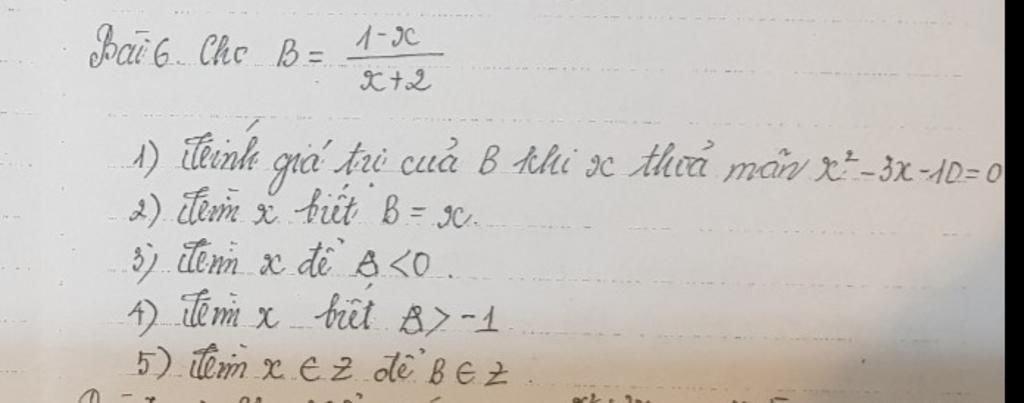 Bài 6. Cho B = \frac{1-x}{x+2}
1) Tính giá trị của B khi x thoả mãn x² - 3x - 10 = 0
2) Tìm x biết B = x.
3) Tìm x để B < 0.
4) Tìm x biết B > -1
5) Tìm x ∈ Z để B ∈ Z.